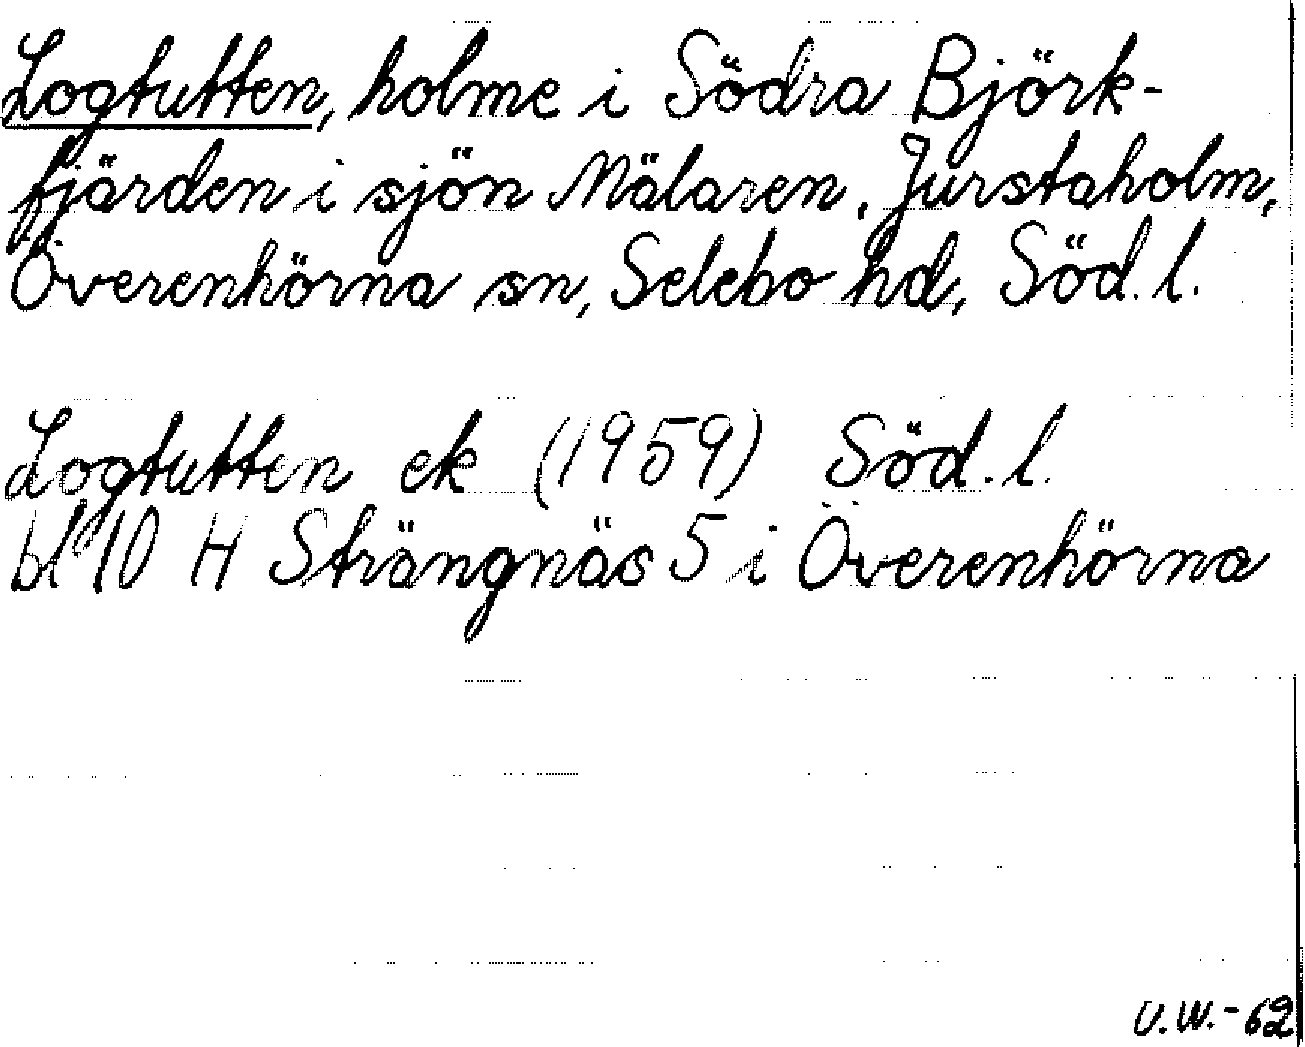 Logtutten, holme i Södra Björk-
fjärden i sjön Mälaren, Jurstaholm,
Överenhörna sn, Selebo hd, Söd. l.
Logtutten ek (1959) Söd. l.
bl 10 H Strängnäs 5 i Överenhörna
U.W.-62